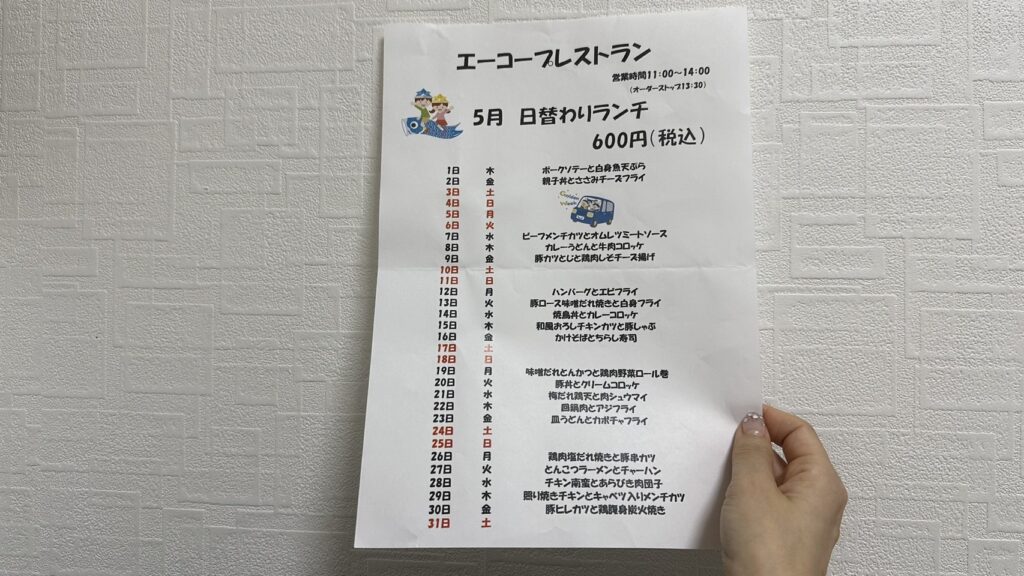 エーコープレストラン
営業時間11:00～14:00
(オーダーストップ13:30)
5月 日替わりランチ
600円(税込)
1日 木 ポークソテーと白身魚天ぷら
2日 金 親子丼とささみチーズフライ
3日 土
4日 日
5日 月
6日 火
7日 水 ビーフメンチカツとオムレツミートソース
8日 木 カレーうどんと牛肉コロッケ
9日 金 豚カツとじと鶏肉しそチーズ揚げ
10日 土
11日 日
12日 月 ハンバーグとエビフライ
13日 火 豚ロース味噌だれ焼きと白身フライ
14日 水 焼鳥丼とカレーコロッケ
15日 木 和風おろしチキンカツと豚しゃぶ
16日 金 かけそばとちらし寿司
17日 土
18日 日
19日 月 味噌だれとんかつと鶏肉野菜ロール巻
20日 火 豚丼とクリームコロッケ
21日 水 梅だれ鶏天と肉シュウマイ
22日 木 回鍋肉とアジフライ
23日 金 皿うどんとカボチャフライ
24日 土
25日 日
26日 月 鶏肉塩だれ焼きと豚串カツ
27日 火 とんこつラーメンとチャーハン
28日 水 チキン南蛮とあらびき肉団子
29日 木 照り焼きチキンとキャベツ入りメンチカツ
30日 金 豚ヒレカツと鶏諸身炭火焼き
31日 土